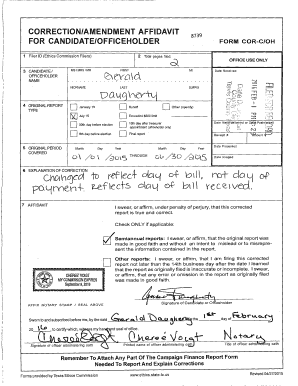 CORRECTION/AMENDMENT AFFIDAVIT
FOR CANDIDATE/OFFICEHOLDER
FORM COR-C/OH
1 Filer ID (Ethics Commission Filers)
2 Total pages filed:
2
OFFICE USE ONLY
3 CANDIDATE/
OFFICEHOLDER
NAME
FIRST
MI
Gerald
Date Received
NICKNAME
LAST
SUFFIX
Daugherty
4 ORIGINAL REPORT
TYPE
January 15
Runoff
Other (specify)
July 15
30th day before election
15th day after treasurer
appointment (officeholder only)
8th day before election
Final report
Receipt #
Amount
5 ORIGINAL PERIOD
COVERED
Month Day Year
01/01/2015
THROUGH
Month Day Year
06/30/2015
Date Processed
Date Imaged
6 EXPLANATION OF CORRECTION
Changed to reflect day of bill, not day of
payment. Reflects day of bill received.
7 AFFIDAVIT
I swear, or affirm, under penalty of perjury, that this corrected
report is true and correct.
Check ONLY if applicable:
Semiannual reports: I swear, or affirm, that the original report was
made in good faith and without an intent to mislead or to misrepre-
sent the information contained in the report.
Other reports: I swear, or affirm, that I am filing this corrected
report not later than the 14th business day after the date I learned
that the report as originally filed is inaccurate or incomplete. I swear, or
affirm, that any error or omission in the report as originally filed
was made in good faith.
CHEREE VOIGT
MY COMMISSION EXPIRES
September 8, 2019
AFFIX NOTARY STAMP / SEAL ABOVE
Signature of Candidate or Officeholder
Sworn to and subscribed before me, by the said Gerald Daugherty this the 1st day of February
20 16 to certify which, witness my hand and seal of office.
Cheree Voigt
Notary
Signature of officer administering oath
Printed name of officer administering oath
Title of officer administering oath
Remember To Attach Any Part Of The Campaign Finance Report Form
Needed To Report And Explain Corrections
Forms provided by Texas Ethics Commission
www.ethics.state.tx.us